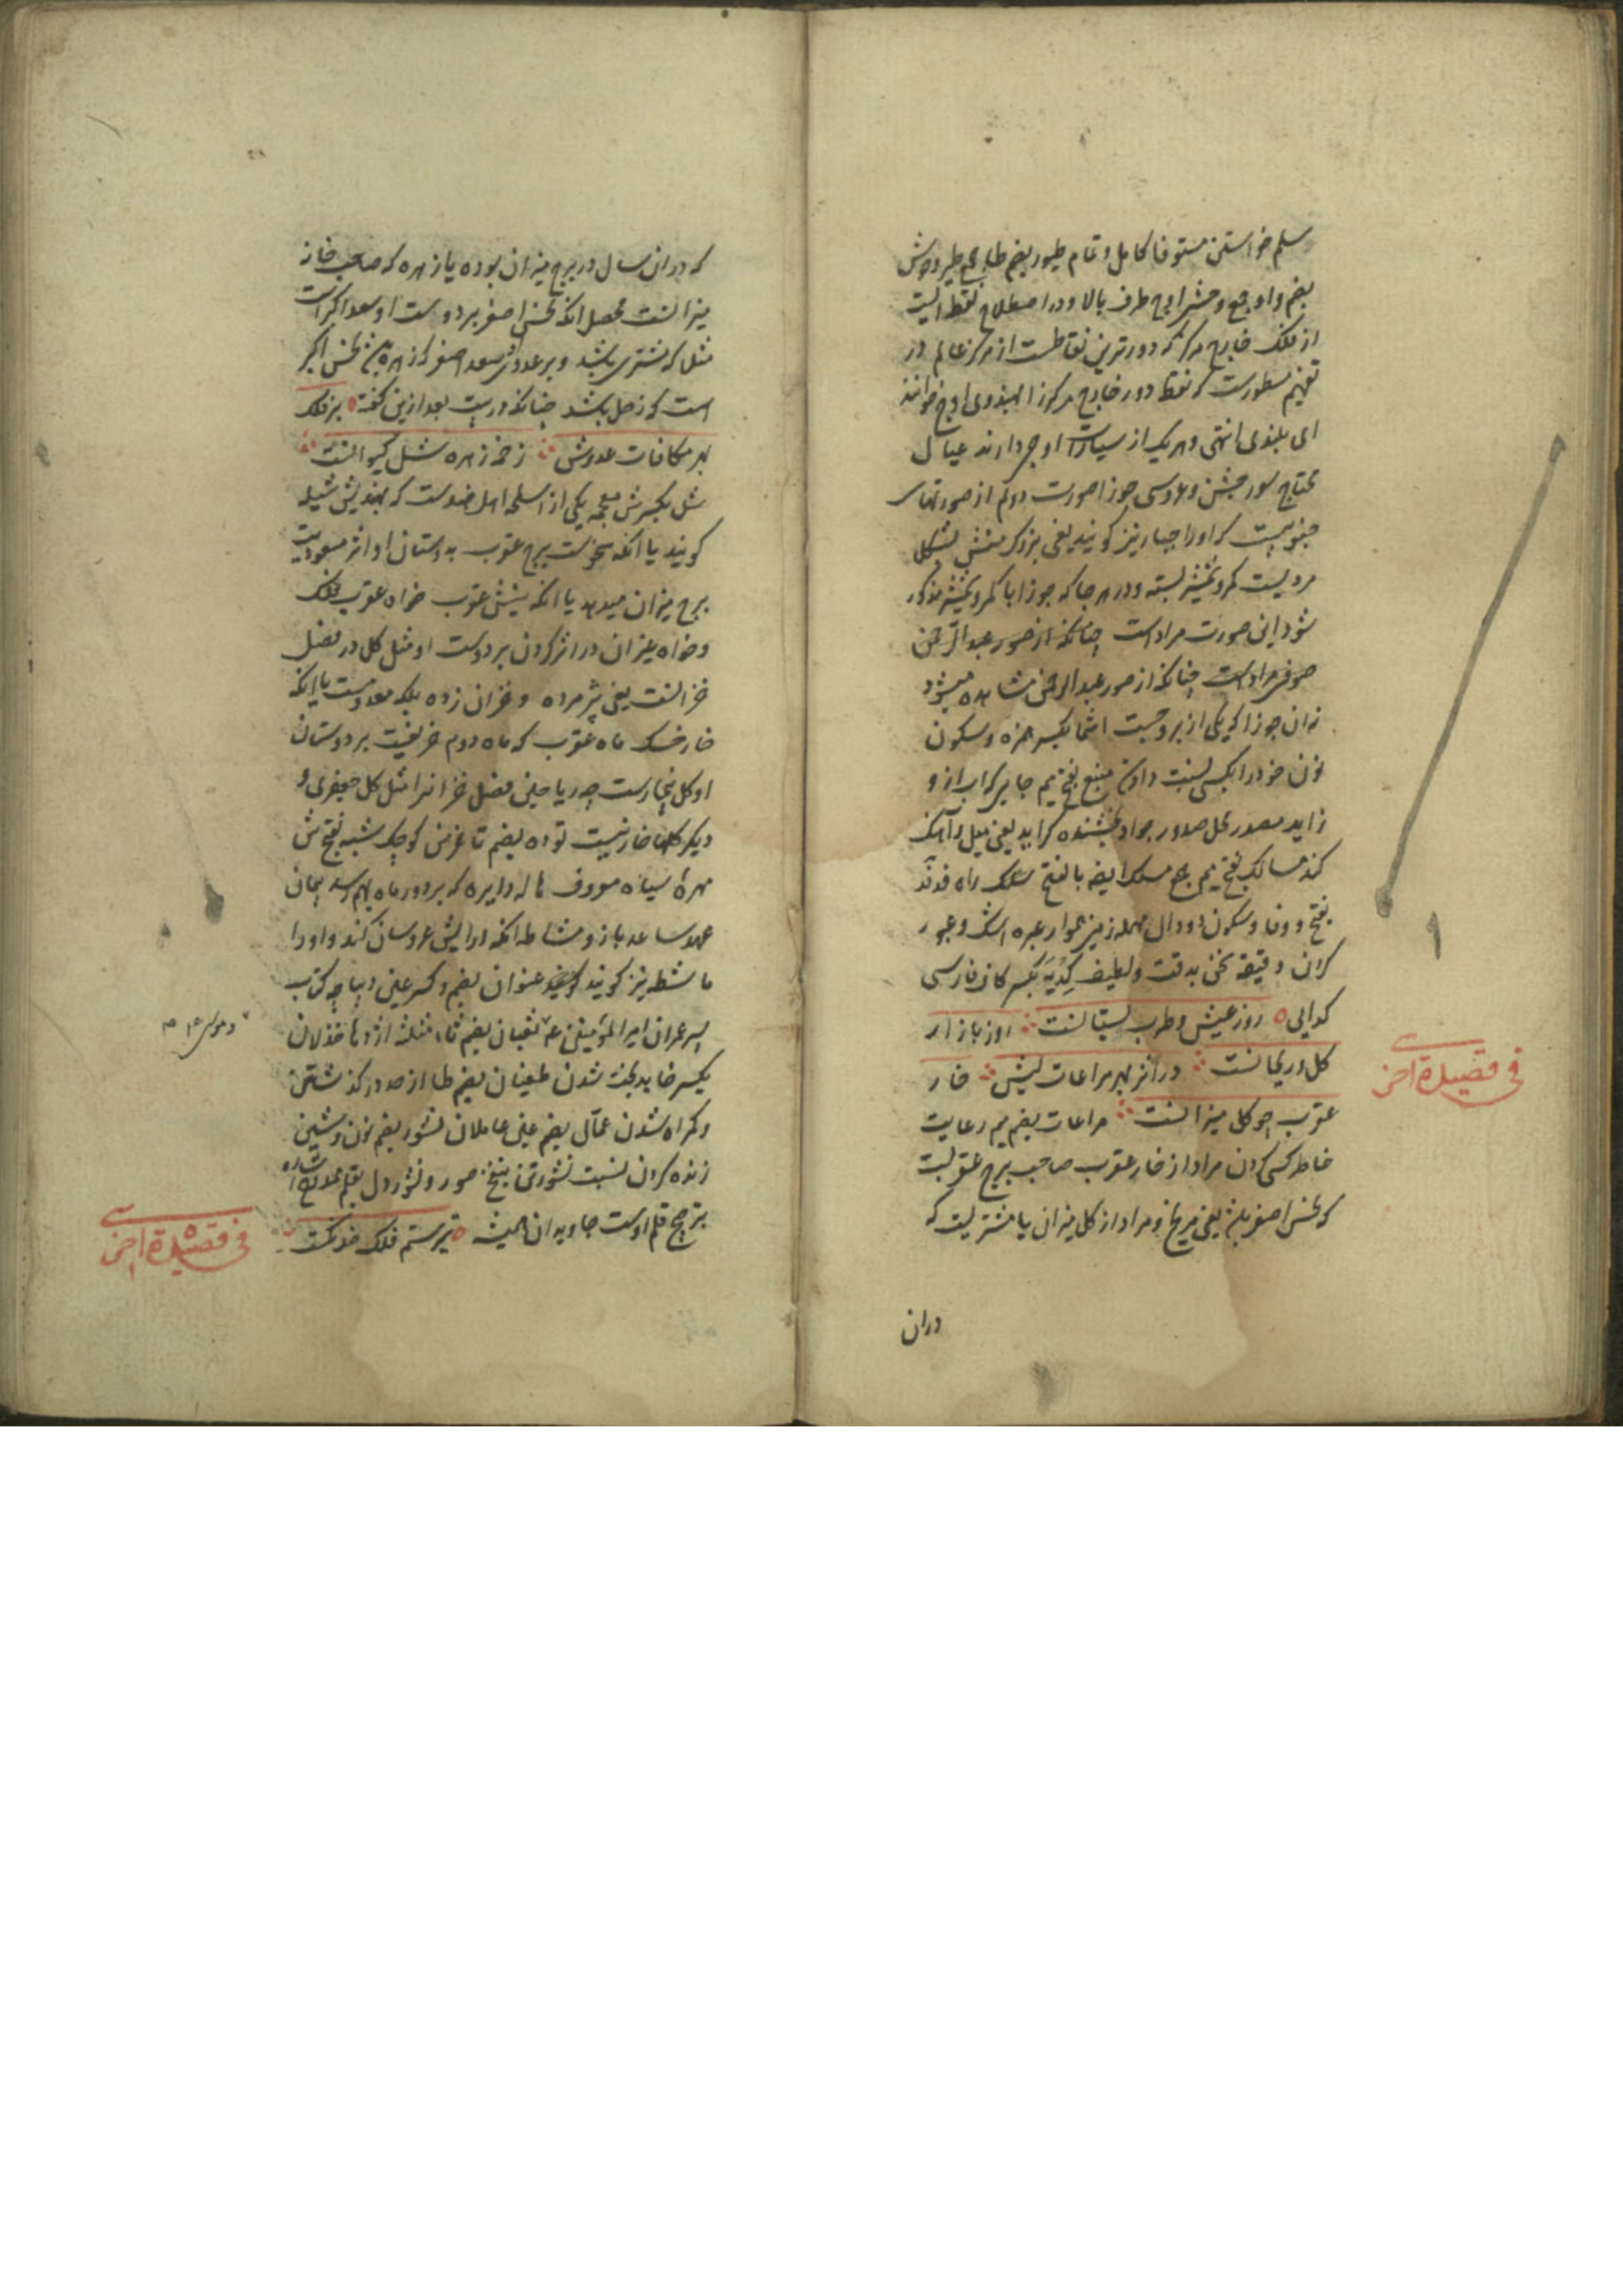 سلم خواستن مستوفا کامل و تمام طیور بضم طا جمع طیر وحوش
بضم واو جمع وحش اوج طرف بالا و در اصطلاح نقطه ایست
از فلک خارج مرکز که دورترین نقاطست از مرکز عالم در
تفهیم مسطورست که نقطه دور خارج مرکز را بهندوی اوج خوانند
ای بلندی انتهی و هر یک از سیارات اوجی دارند عیال
محتاج سور جشن و عروسی جوزا صورت دوم از صورتهای
جنوبیست که اورا جبار نیز کویند یعنی بزرک منش بشکل
مردیست کمر و شمشیر بسته و در هر جا که جوزا با کمر و شمشیر مذکور
شود این صورت مراد است چنانکه از صور عبد الرحمن
صوفی مراد است چنانکه از صور عبد الرحمن مشاهده میشود
نه ان جوزا که یکی از بروجست انتما بکسر همزه و سکون
نون خود را بکسی نسبت دادن منبع بفتح میم جایی که اب از و
زاید مصدر محل صدور جواد بخشنده کراید یعنی میل و اهنک
کند مسالک بفتح میم جمع مسلک ایضه بالفتح سلک راه فدفد
بفتح دو فا و سکون دو دال مهمله زمین هموار عبره اشک و عبور
کران دقیقه یعنی بدقت و لطیف کدیه بکسر کاف فارسی
کدایی ه روز عیش و طرب بستانست ∴ روز بازار
کل و ریحانست ∴ در اثر بهر مراعات لبش ∴ خار
فی قصیدة اخری
عقرب چو کل میزانست ∴ مراعات بضم میم رعایت
خاطر کسی کردن مراد از خار عقرب صاحب برج عقربست
که نحس اصغر باشد یعنی مریخ و مراد از کل میزان یا مشتریست که
دران
که دران سال در برج میزان بوده یا زهره که صاحب خانه
میزانست محصل انکه نحس اصغر بر دوست او سعد اکبر است
مثل که مشتری باشد و بر عدوش سعد اصغر که زهره نحس اکبر
است که زحل باشد چنانکه در بیت بعد ازین کفته ه بر فلک
بهر مکافات عدوش ∴ زخمه زهره شل کیوانست ∴
شل بکسر ش معجمه یکی از اسلحه اهل هندوست که بهندیش شیله
کویند یا انکه نحوست برج عقرب بدوستان او اثر مسعودیت
برج میزان میدهد یا انکه نیش عقرب خواه عقرب فلک
و خواه غیر ان در اثر کردن بر دوست او مثل کل در فصل
خزانست یعنی پژمرده و خزان زده بلکه معدومست یا انکه
خار خسک ماه عقرب که ماه دوم خریفیست بر دوستان
او کل بیخارست چه ریاحین فصل خزانرا مثل کل جعفری و
دیکر کلها خار نیست توده بضم تا خرمن کوچک شبه بفتح ش
مهره سیاه معروف هاله دایره که بر دور ماه بهم رسد پیمان
عهد ساعد بازو مشاطه انکه ارایش عروسان کند و اورا
ماشطه نیز کویند عنوان بضم و کسر عین دیباچه کتاب
و موسی ۴
پسر عمران امیر المؤمنین ع ثعبان بضم ثاء مثلثه اژدها خذلان
بکسر خا بدبخت شدن طغیان بضم طا از حد در کذشتن
و کمراه شدن عمال بضم عین عاملان نشور بضم نون و شین
زنده کردن نسبت نشور بنفخ صور و نشور دل بقلم ممدوح اشاره
بترجیح قلم اوست جاویدان همیشه ه تیر ستم فلک خدنکست ∴
فی قصیدة اخری